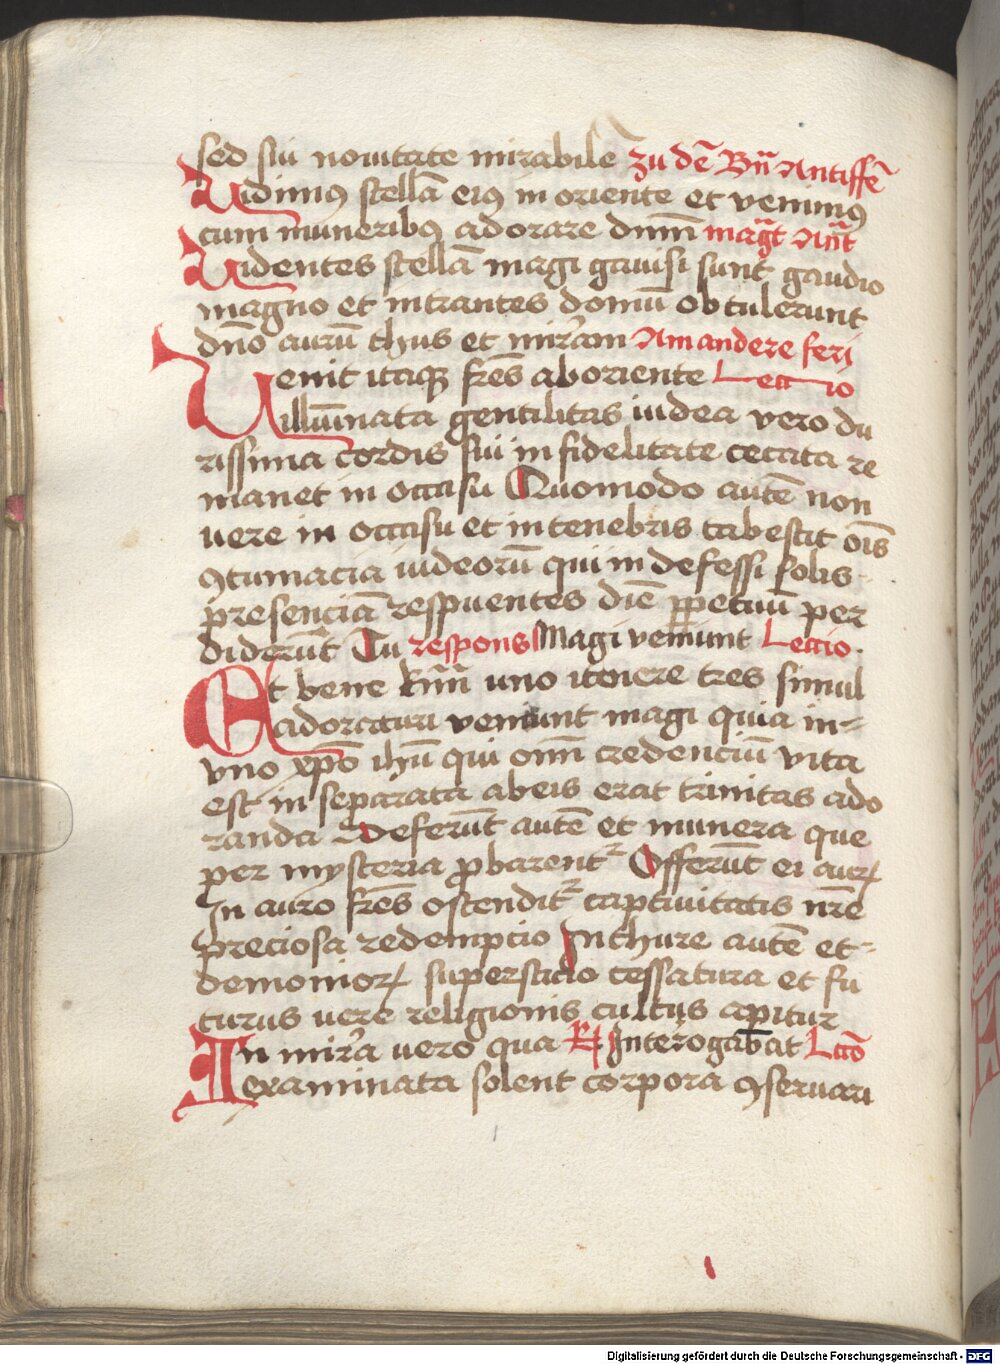 sed sui nouitate mirabile zu dē Bn̄ Antiffē
Vidimꝰ stellā eiꝰ in oriente et venimꝰ
cum muneribꝫ adorare dnm̄ mag̅t An̄t
Videntes stellā magi gauisi sunt gaudio
magno et intrantes domū obtulerunt
dn̄o aurū thus et mirram Am andere feri
Venit itaqꝫ fr̄es ab oriente Lectio
illūinata gentilitas iudea vero du
rissima cordis sui infidelitate cecata re
manet in occasu Quomodo autē non
vere in occasu et in tenebris tabescit oīs
ꝯtumacia iudeorū qui indefessi solis
presenciā respuentes diē ꝑpetuū per
diderūt Tu respons Magi veniunt Lectio
Et bene kr̄mi uno itenere tres simul
adoraturi veniunt magi quia in-
vno xp̄o ih̄u qui om̄ credenciū vita
est in separata ab eis erat trinitas ado
randa Deferūt autē et munera que
per mysteria ꝓbarentᷣ Offerūt ei aurꝝ
In auro fr̄es ostenditᷣ captiuitatis nr̄e
preciosa redempcio In thure autē et-
demoniorꝝ supersticio cessatura et fu
turus vere religionis cultus apitur
In mirra vero qua R̸ Interrogabat Lcō
examinata solent corpora ꝯseruari
Digitalisierung gefördert durch die Deutsche Forschungsgemeinschaft - DFG